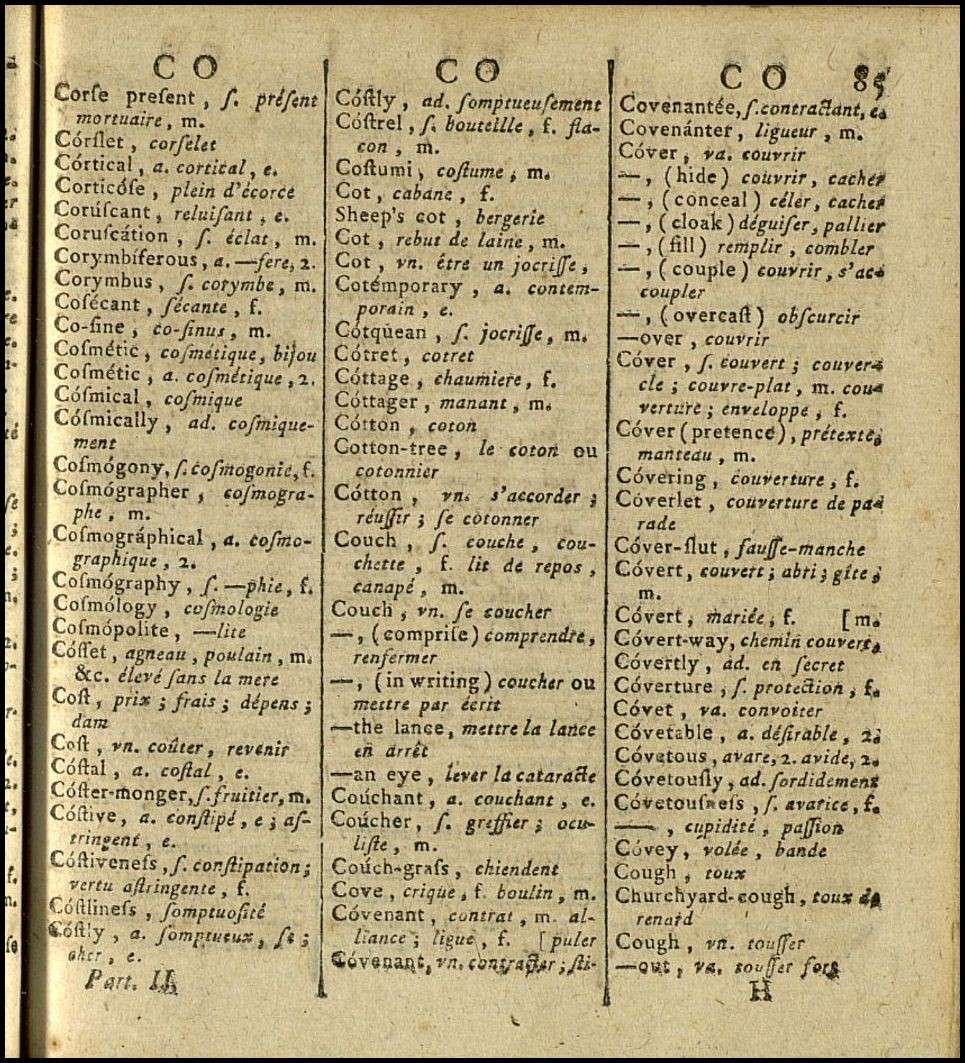 C O
Corſe preſent, ſ. préſent
mortuaire, m.
Córſlet, corſelet
Córtical, a. cortical, e.
Corticóſe, plein d'écorce
Corúſcant, reluiſant, e.
Coruſcátion, ſ. éclat, m.
Corymbíferous, a. —fere, 2.
Corymbus, ſ. corymbe, m.
Coſécant, ſécante, f.
Co-ſine, co-ſinus, m.
Coſmétic, coſmétique, bijou
Coſmétic, a. coſmétique, 2.
Cóſmical, coſmique
Cóſmically, ad. coſmique-
ment
Coſmógony, ſ. coſmogonie, f.
Coſmógrapher, coſmogra-
phe, m.
Coſmográphical, a. coſmo-
graphique, 2.
Coſmógraphy, ſ. —phie, f.
Coſmólogy, coſmologie
Coſmópolite, —lite
Cóſſet, agneau, poulain, m.
&c. élevé ſans la mere
Coſt, prix; frais; dépens;
dam
Coſt, vn. coûter, revenir
Cóſtal, a. coſtal, e.
Cóſter-monger, ſ. fruitier, m.
Cóſtive, a. conſtipé, e; aſ-
tringent, e.
Cóſtiveneſs, ſ. conſtipation;
vertu aſtringente, f.
Cóſtlineſs, ſomptuoſité
Cóſtly, a. ſomptueux, ſe;
cher, e.
Part. II.
C O
Cóſtly, ad. ſomptueuſement
Cóſtrel, ſ. bouteille, f. fla-
con, m.
Coſtumi, coſtume, m.
Cot, cabane, f.
Sheep's cot, bergerie
Cot, rebut de laine, m.
Cot, vn. être un jocriſſe,
Cotémporary, a. contem-
porain, e.
Cótquean, ſ. jocriſſe, m.
Cótret, cotret
Cóttage, chaumiere, f.
Cóttager, manant, m.
Cótton, coton
Cotton-tree, le coton ou
cotonnier
Cótton, vn. s'accorder;
réuſſir; ſe cotonner
Couch, ſ. couche, cou-
chette, f. lit de repos,
canapé, m.
Couch, vn. ſe coucher
—, (compriſe) comprendre,
renfermer
—, (in writing) coucher ou
mettre par écrit
—the lance, mettre la lance
en arrêt
—an eye, lever la cataracte
Coúchant, a. couchant, e.
Coúcher, ſ. greffier; ocu-
liſte, m.
Coúch-graſs, chiendent
Cove, crique, f. boulin, m.
Cóvenant, contrat, m. al-
liance; ligue, f. [puler
Cóvenant, vn. contracter; ſti-
C O 85
Covenantée, ſ. contractant, e.
Covenánter, ligueur, m.
Cóver, va. couvrir
—, (hide) couvrir, cacher
—, (conceal) céler, cacher
—, (cloak) déguiſer, pallier
—, (fill) remplir, combler
—, (couple) couvrir, s'ac-
coupler
—, (overcaſt) obſcurcir
—over, couvrir
Cóver, ſ. couvert; couver-
cle; couvre-plat, m. cou-
verture; enveloppe, f.
Cóver (pretence), prétexte,
manteau, m.
Cóvering, couverture, f.
Cóverlet, couverture de pa-
rade
Cóver-ſlut, fauſſe-manche
Cóvert, couvert; abri; gîte;
m.
Cóvert, mariée, f. [m.
Cóvert-way, chemin couvert,
Cóvertly, ad. en ſecret
Cóverture, ſ. protection, f.
Cóvet, va. convoiter
Cóvetable, a. déſirable, 2.
Cóvetous, avare, 2. avide, 2.
Cóvetouſly, ad. ſordidement
Cóvetouſneſs, ſ. avarice, f.
——, cupidité, paſſion
Cóvey, volée, bande
Cough, toux
Churchyard-cough, toux de
renard
Cough, vn. touſſer
—out, va. touſſer fort
H